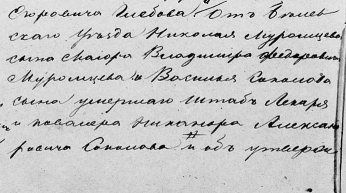 Егоровича Глебова. Отъ Белев
скаго Уезда Николая Муромцева
сына Маіора Владиміра Федоровича
Муромцева и Василья Соколова
сына умершаго Штабъ Лекаря
и кавалера Никанора Алексан
ровича Соколова и объ утверж